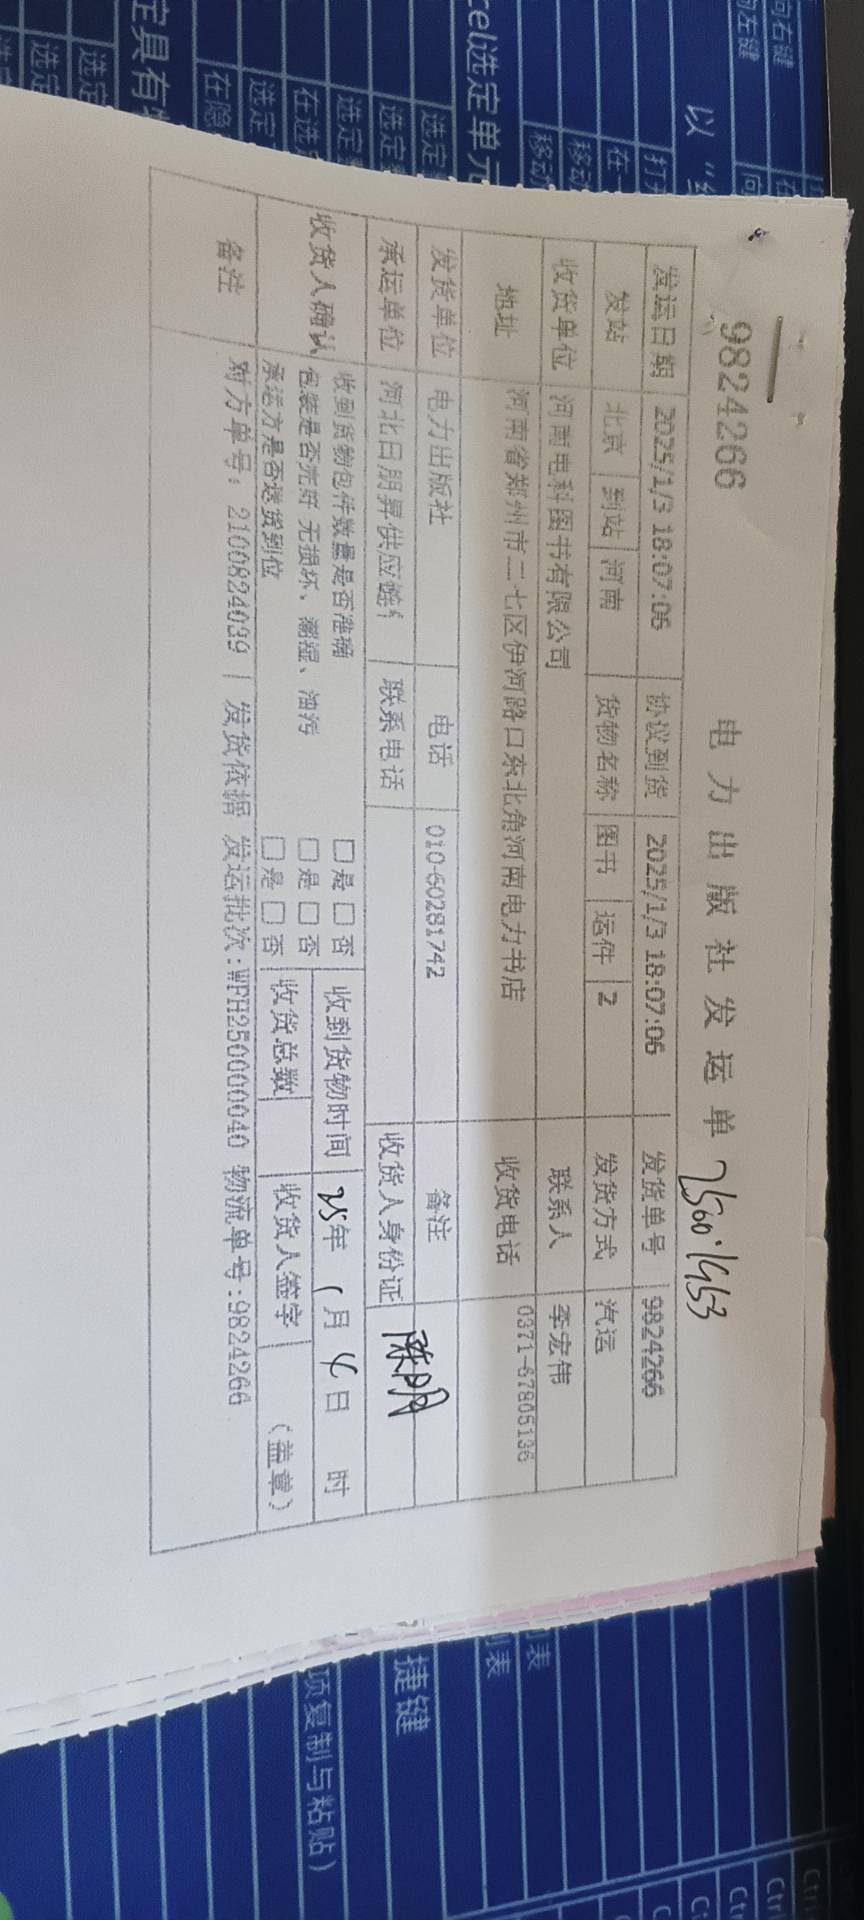 9824266
电力出版社发运单 2500.1953
发运日期 2025/1/3 18:07:06 协议到货 2025/1/3 18:07:06 发货单号 9824266
发站 北京 到站 河南 货物名称 图书 运件 2 发货方式 汽运
收货单位 河南电科图书有限公司 联系人 李宏伟
地址 河南省郑州市二七区伊河路口东北角河南电力书店 收货电话 0371-67805136
发货单位 电力出版社 电话 010-60281742 备注
承运单位 河北日朋昇供应链 联系电话 收货人身份证
收货人确认 收到货物包件数量是否准确 □是□否 收到货物时间 25年1月4日 时
包装是否完好 无损坏、潮湿、油污 □是□否
承运方是否送货到位 □是□否 收货总数 收货人签字 （盖章）
备注 对方单号：2100824039 | 发货依据 发运批次:WPH250000040 物流单号:9824266
向右键
向左键
以 "
打开
移动
移动
cel选定单元
选定
选定
选定
在选定
选定
在隐
定具有
选定
选定
列表
列表
捷键
项复制与粘贴）
Ctrl
Ctrl
Ctrl